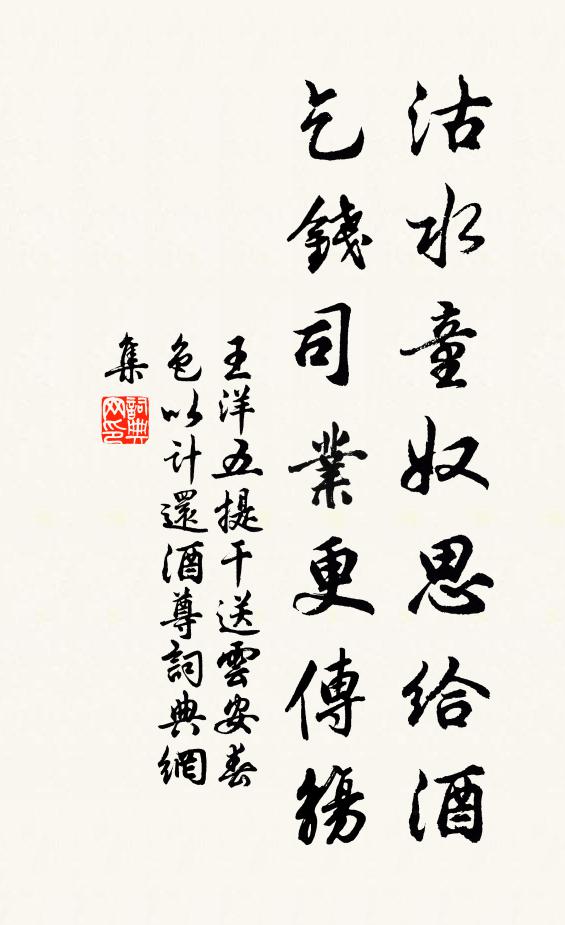 沽水童奴思給酒
乞錢司業更傳觴
王洋五提干送雲安春
色以計還酒尊詞典網
集
詞典
网印